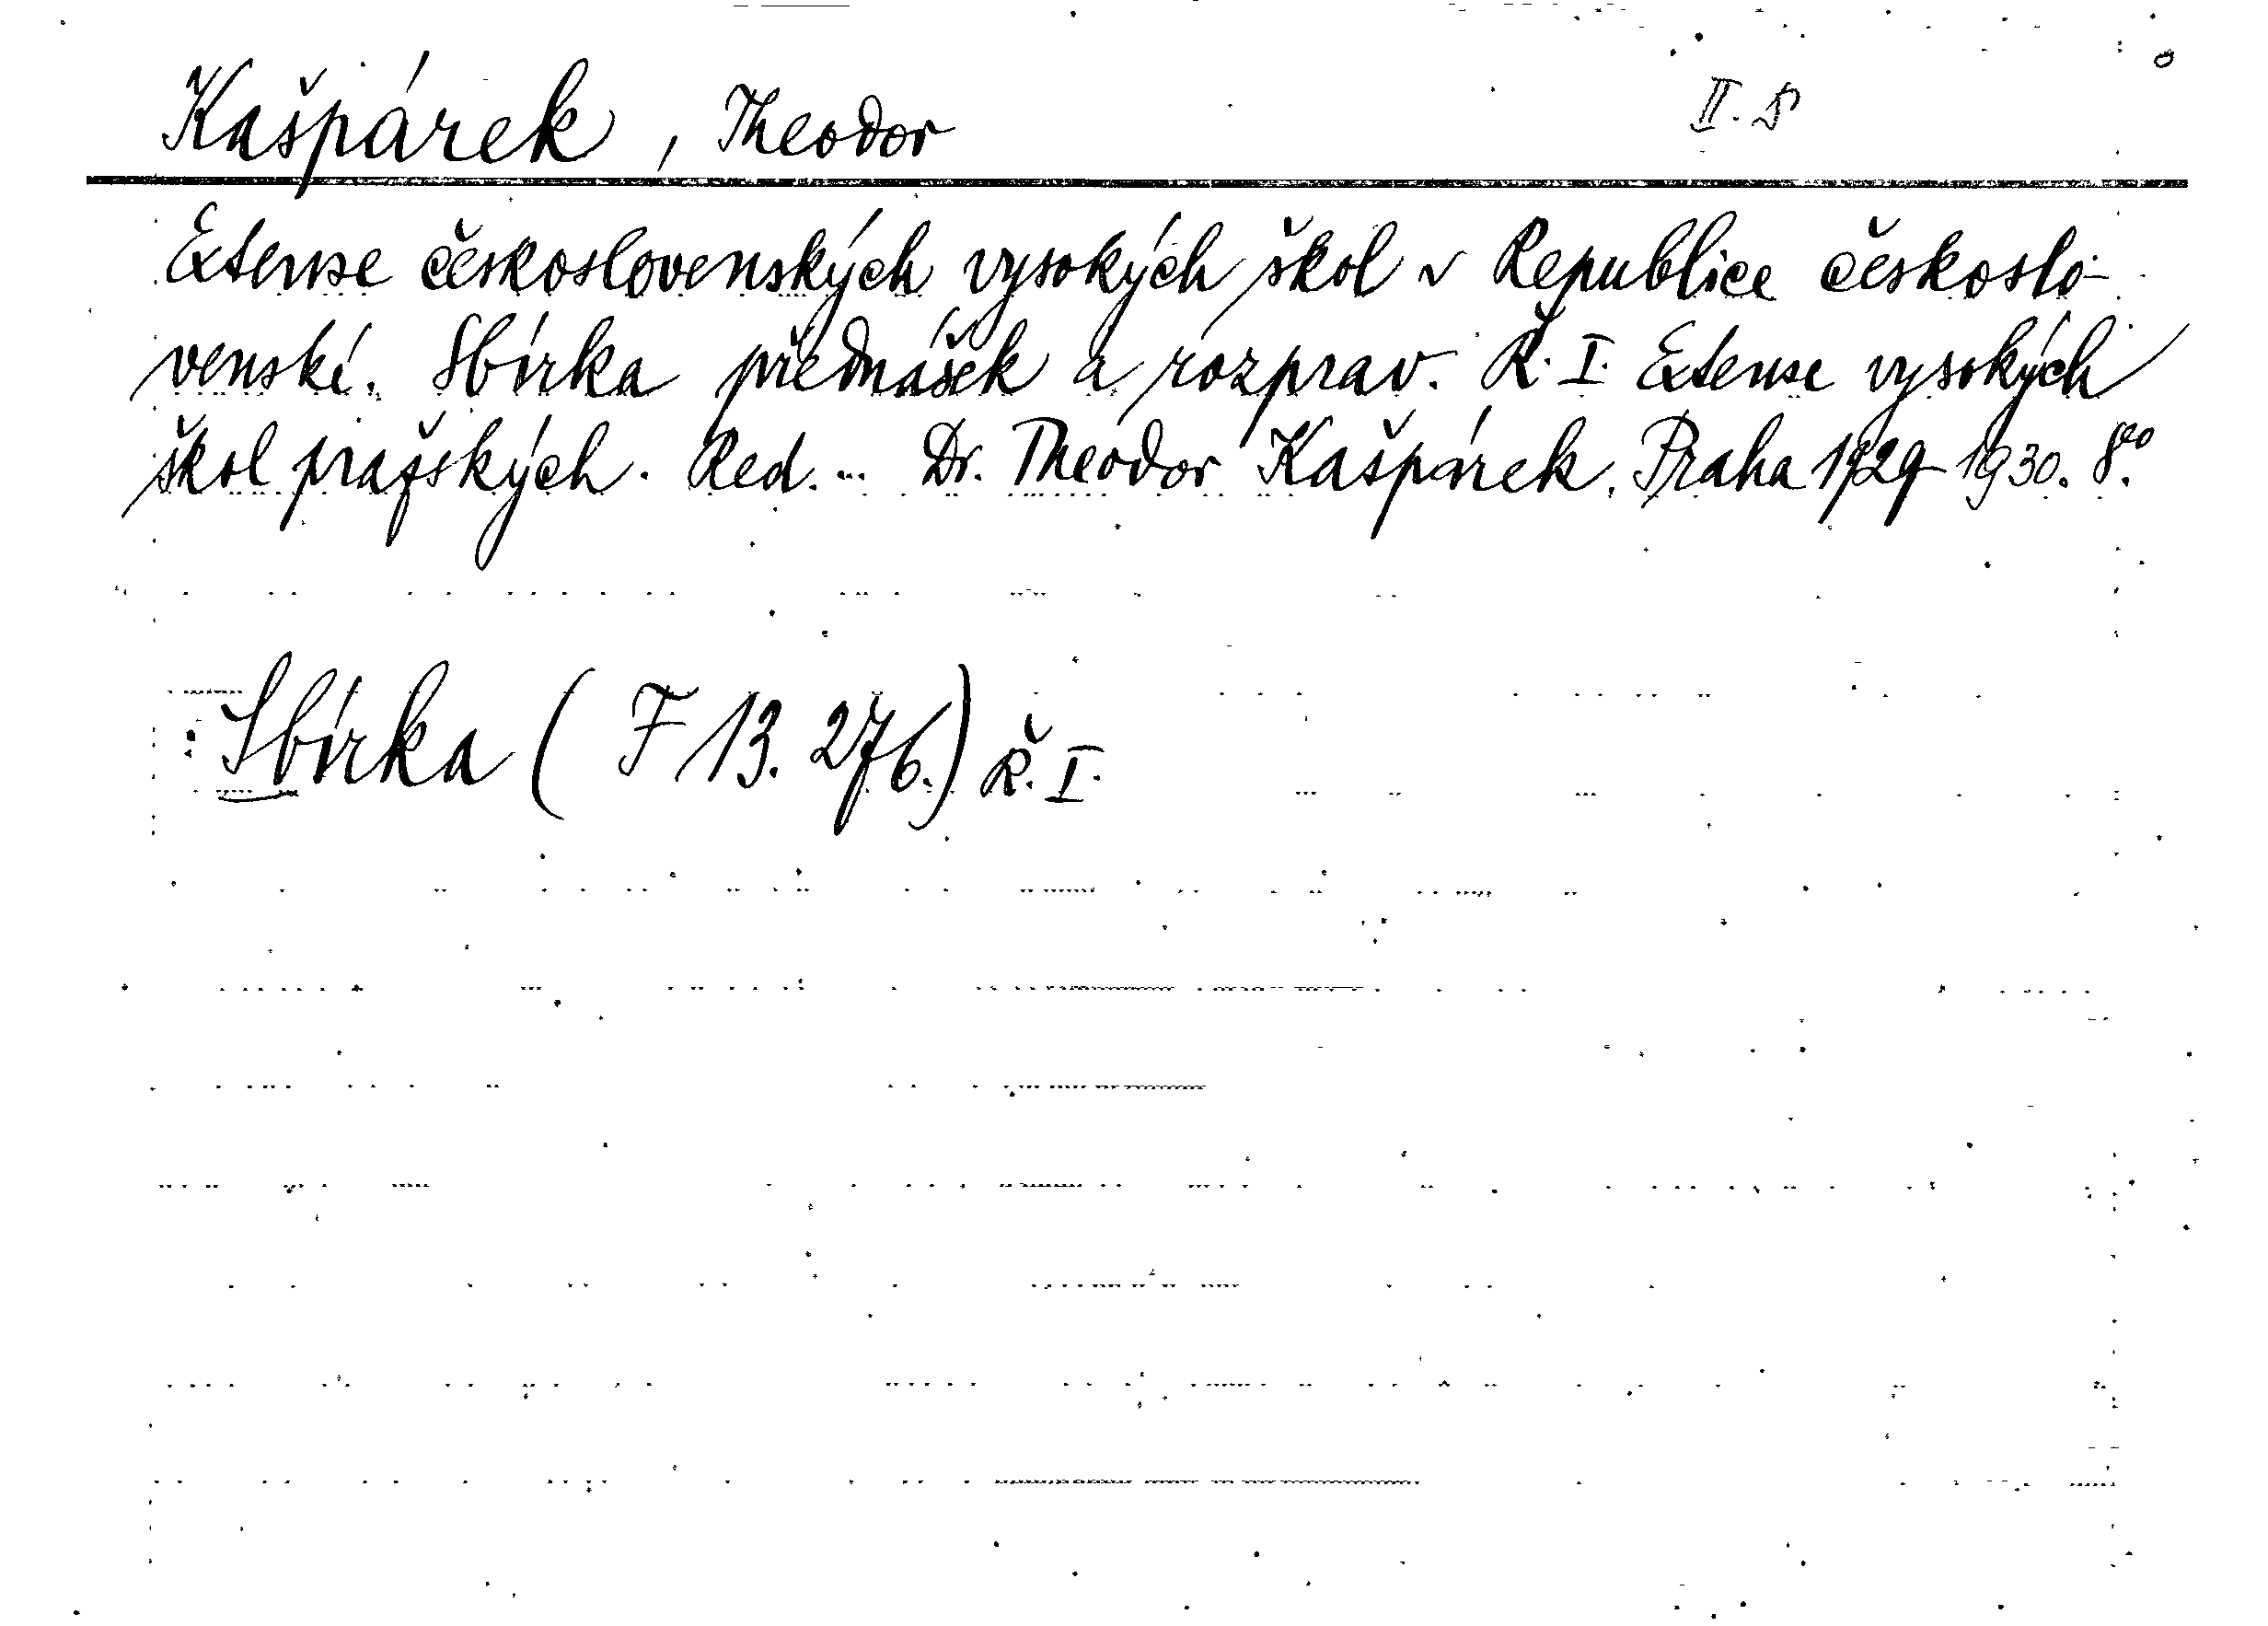 Kašpárek, Theodor II.
Extense československých vysokých škol v Republice českoslo-
venské. Sbírka přednášek a rozprav. Ř. I. Extense vysokých
škol pražských. Red... Dr. Theodor Kašpárek. Praha 1929-1930. 8vo.
Sbírka (F 13.276.) Ř. I.